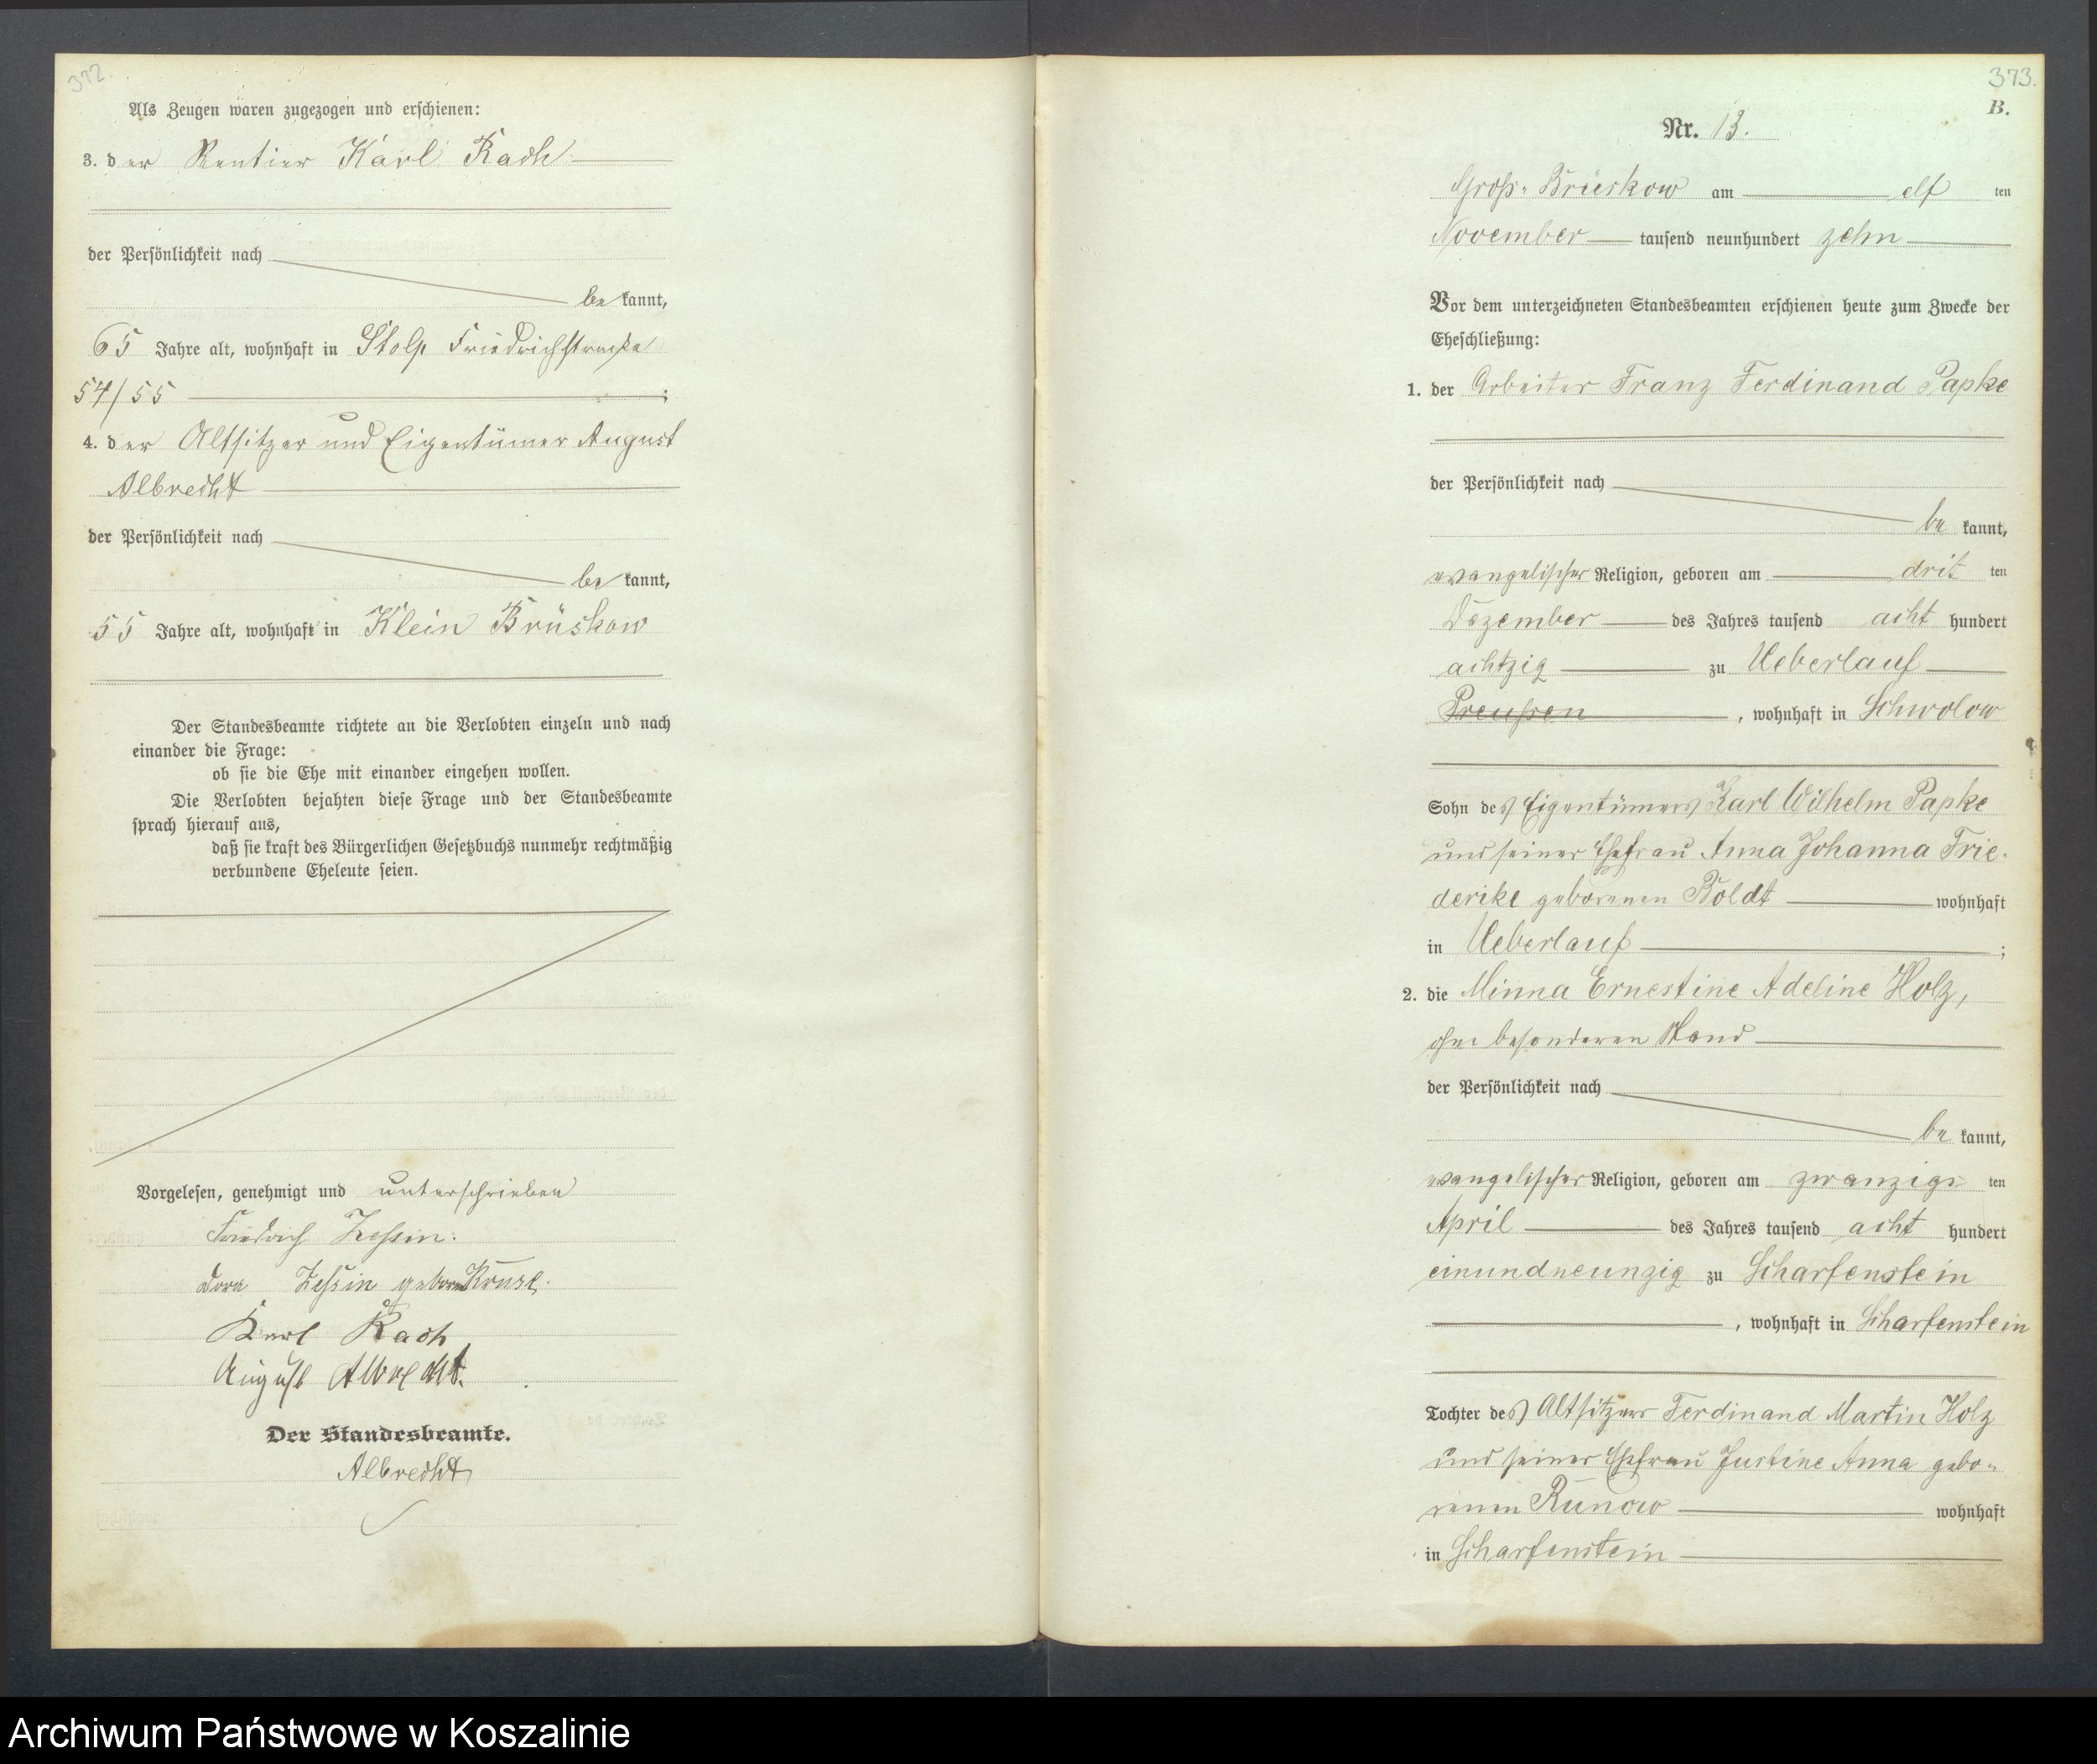 332.
Als Zeugen waren zugezogen und erschienen:
3. der Rentier Karl Rach
der Persönlichkeit nach
be kannt,
65 Jahre alt, wohnhaft in Stolp Friedrichstraße
54/55 ;
4. der Altsitzer und Eigentümer August
Albrecht
der Persönlichkeit nach
be kannt,
55 Jahre alt, wohnhaft in Klein Brüskow
Der Standesbeamte richtete an die Verlobten einzeln und nach
einander die Frage:
ob sie die Ehe mit einander eingehen wollen.
Die Verlobten bejahten diese Frage und der Standesbeamte
sprach hierauf aus,
daß sie kraft des Bürgerlichen Gesetzbuchs nunmehr rechtmäßig
verbundene Eheleute seien.
Vorgelesen, genehmigt und unterschrieben
Friedrich Zessin.
Dora Zessin geborne Kruse.
Karl Rach
August Albrecht.
Der Standesbeamte.
Albrecht
373.
B.
Nr. 13.
Groß-Brüskow am elf ten
November tausend neunhundert zehn
Vor dem unterzeichneten Standesbeamten erschienen heute zum Zwecke der
Eheschließung:
1. der Arbeiter Franz Ferdinand Papke
der Persönlichkeit nach
be kannt,
evangelischer Religion, geboren am drit ten
Dezember des Jahres tausend acht hundert
achtzig zu Ueberlauf
Preußen , wohnhaft in Schwolow
Sohn des Eigentümers Karl Wilhelm Papke
und seiner Ehefrau Anna Johanna Frie-
derike geborenen Boldt wohnhaft
in Ueberlauf ;
2. die Minna Ernestine Adeline Holz,
ohne besonderen Stand
der Persönlichkeit nach
be kannt,
evangelischer Religion, geboren am zwanzigs ten
April des Jahres tausend acht hundert
einundneunzig zu Scharfenstein
, wohnhaft in Scharfenstein
Tochter des Altsitzers Ferdinand Martin Holz
und seiner Ehefrau Justine Anna gebo-
renen Runow wohnhaft
in Scharfenstein
Archiwum Państwowe w Koszalinie